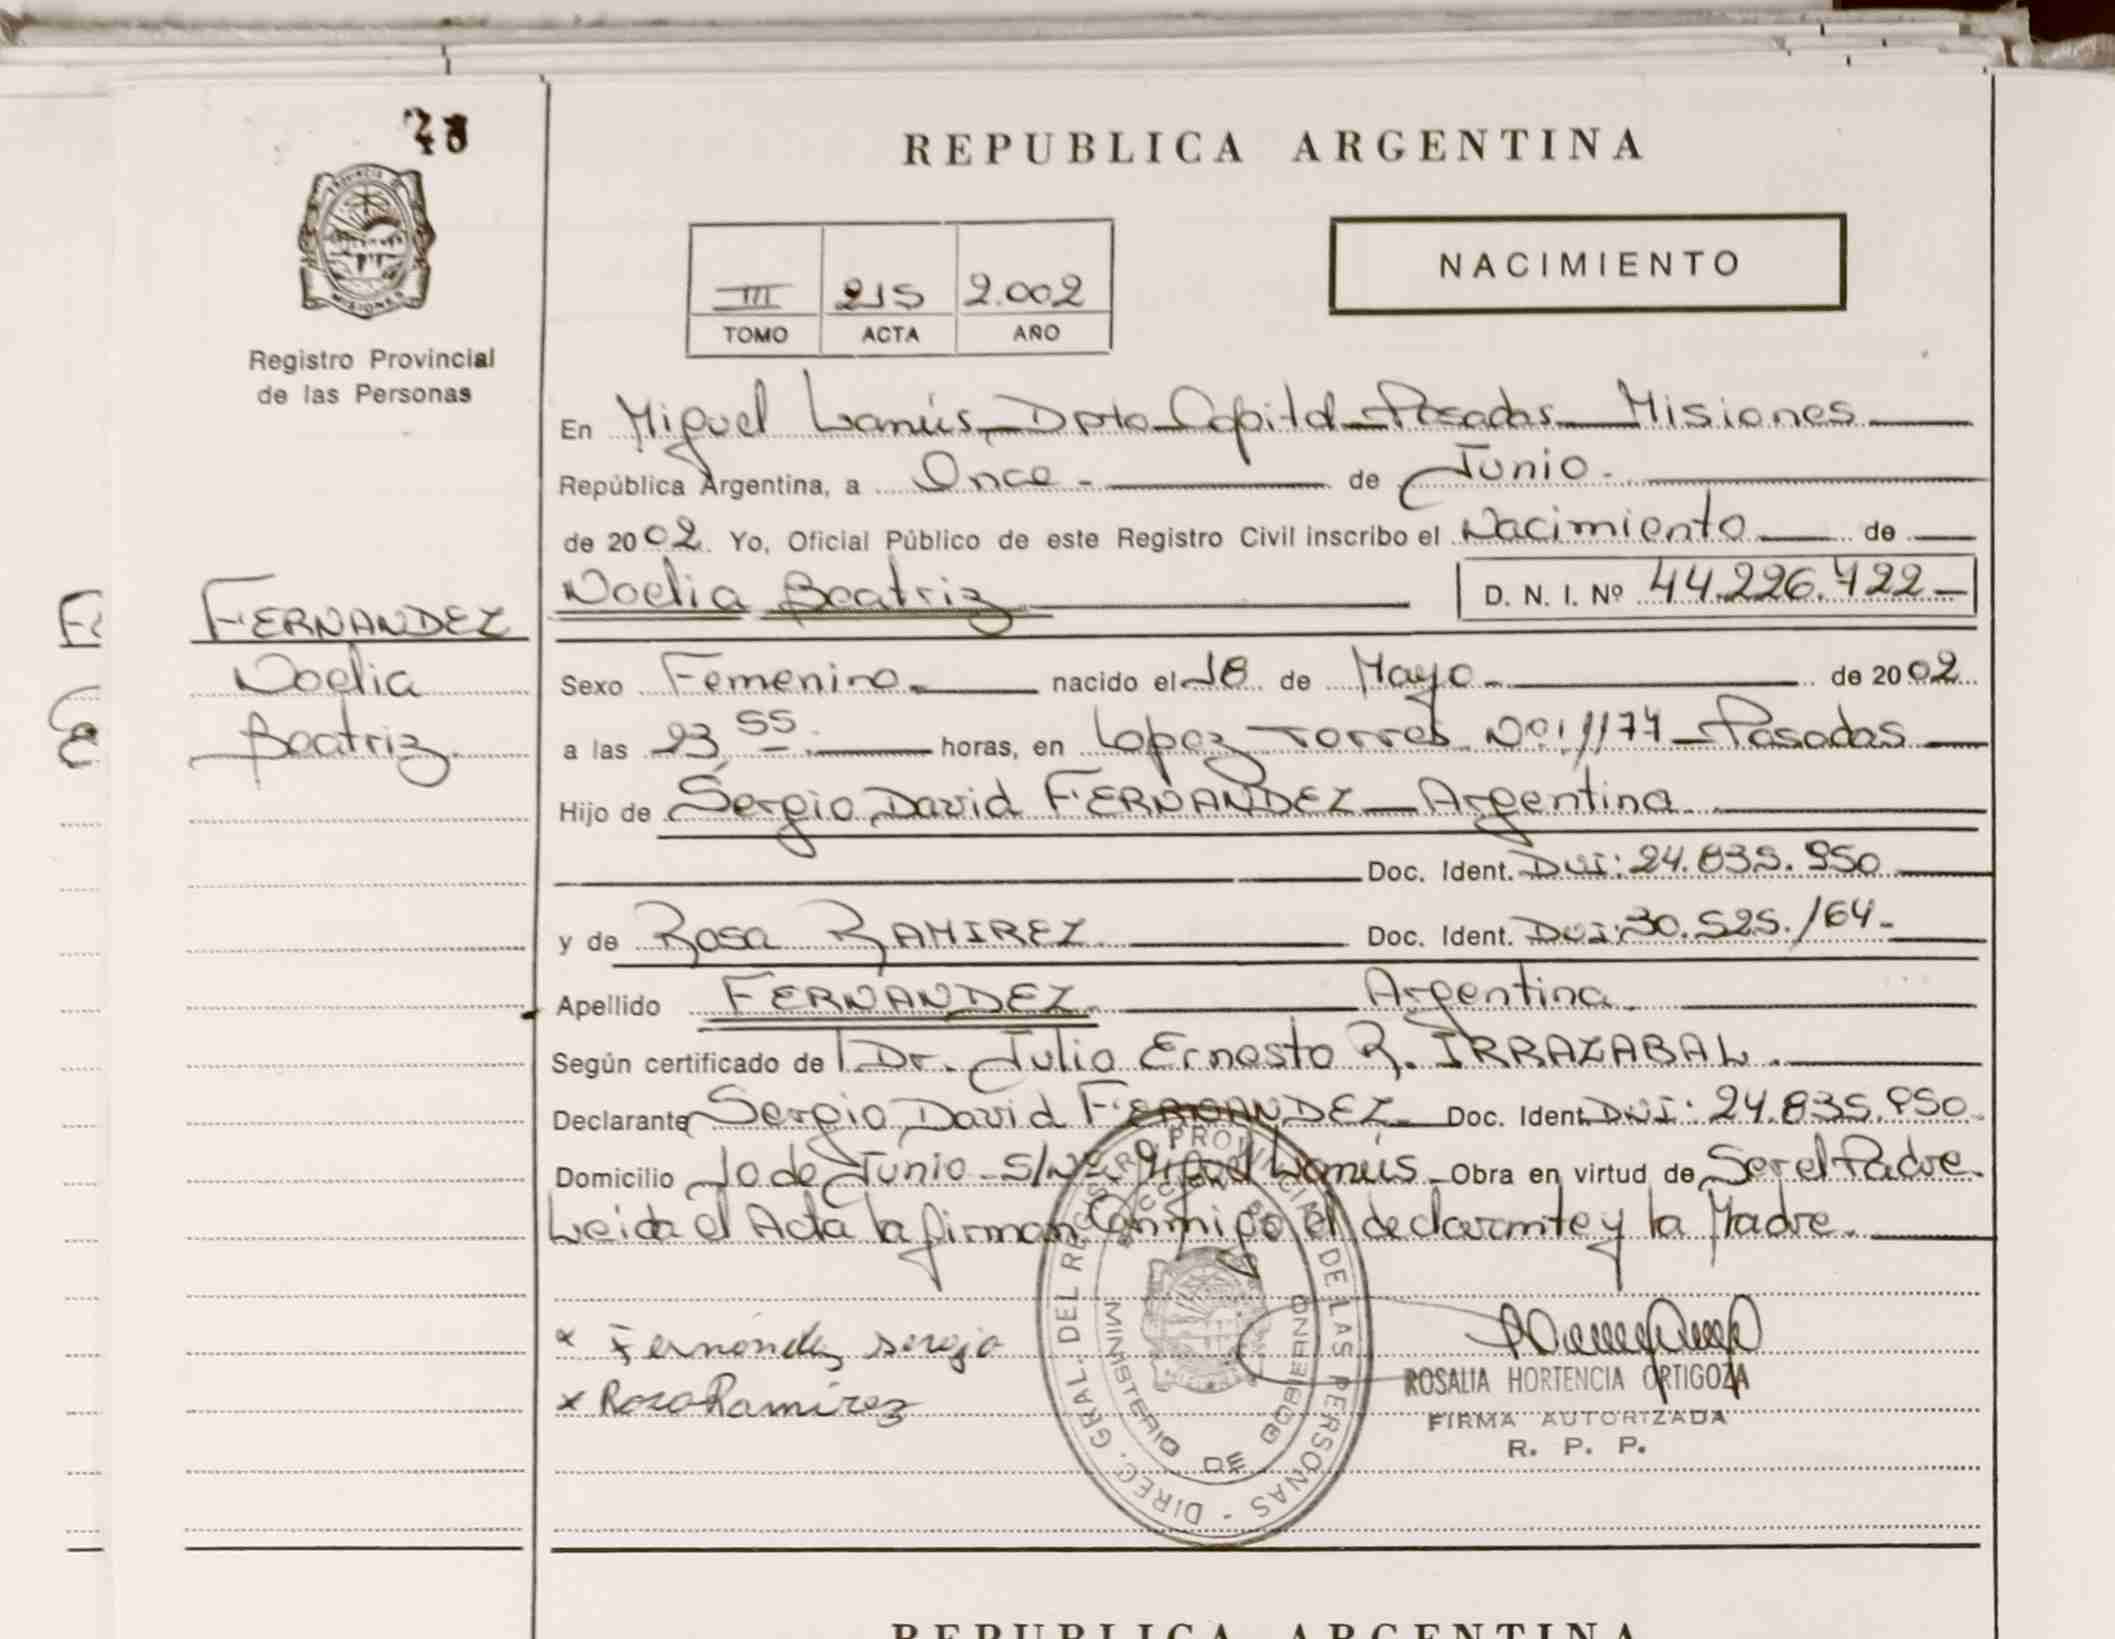 REPUBLICA ARGENTINA
NACIMIENTO
III 215 2.002
TOMO ACTA AÑO
Registro Provincial
de las Personas
En Miguel Lanús - Dpto Capital - Posadas - Misiones
República Argentina, a Once - de Junio.
de 2002. Yo, Oficial Público de este Registro Civil inscribo el Nacimiento de
Noelia Beatriz D. N. I. Nº 44.226.422-
FERNANDEZ
Noelia
Beatriz.
Sexo Femenino. nacido el 18 de Mayo - de 2002
a las 23 55. horas, en Lopez Torres Nº: 1174 - Posadas
Hijo de Sergio David FERNANDEZ - Argentina
Doc. Ident. DNI: 24.835.950
y de Rosa RAMIREZ Doc. Ident. DNI: 30.525.164-
Apellido FERNANDEZ. Argentina.
Según certificado de Dr. Julio Ernesto R. IRRAZABAL.
Declarante Sergio David FERNANDEZ Doc. Ident DNI: 24.835.950.
Domicilio 10 de Junio - S/Nº - Miguel Lanús - Obra en virtud de Ser el Padre.
Leida el Acta la firman Conmigo el declarante y la Madre.
x Fernández sergio
x Rosa Ramirez
DIREC. GRAL. DEL REGISTRO PROVINCIAL DE LAS PERSONAS -
MINISTERIO DE GOBIERNO
ROSALIA HORTENCIA ORTIGOZA
FIRMA AUTORIZADA
R. P. P.
REPUBLICA ARGENTINA